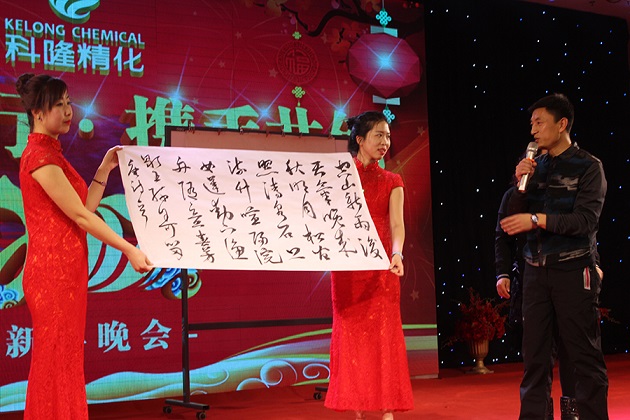 KELONG CHEMICAL
科隆精化
携手共
新
晚会
空山新雨後
天氣晚來
秋明月松间
照清泉石上
流竹喧歸浣
女蓮動下漁
舟隨意春芳
歇王孫自可留